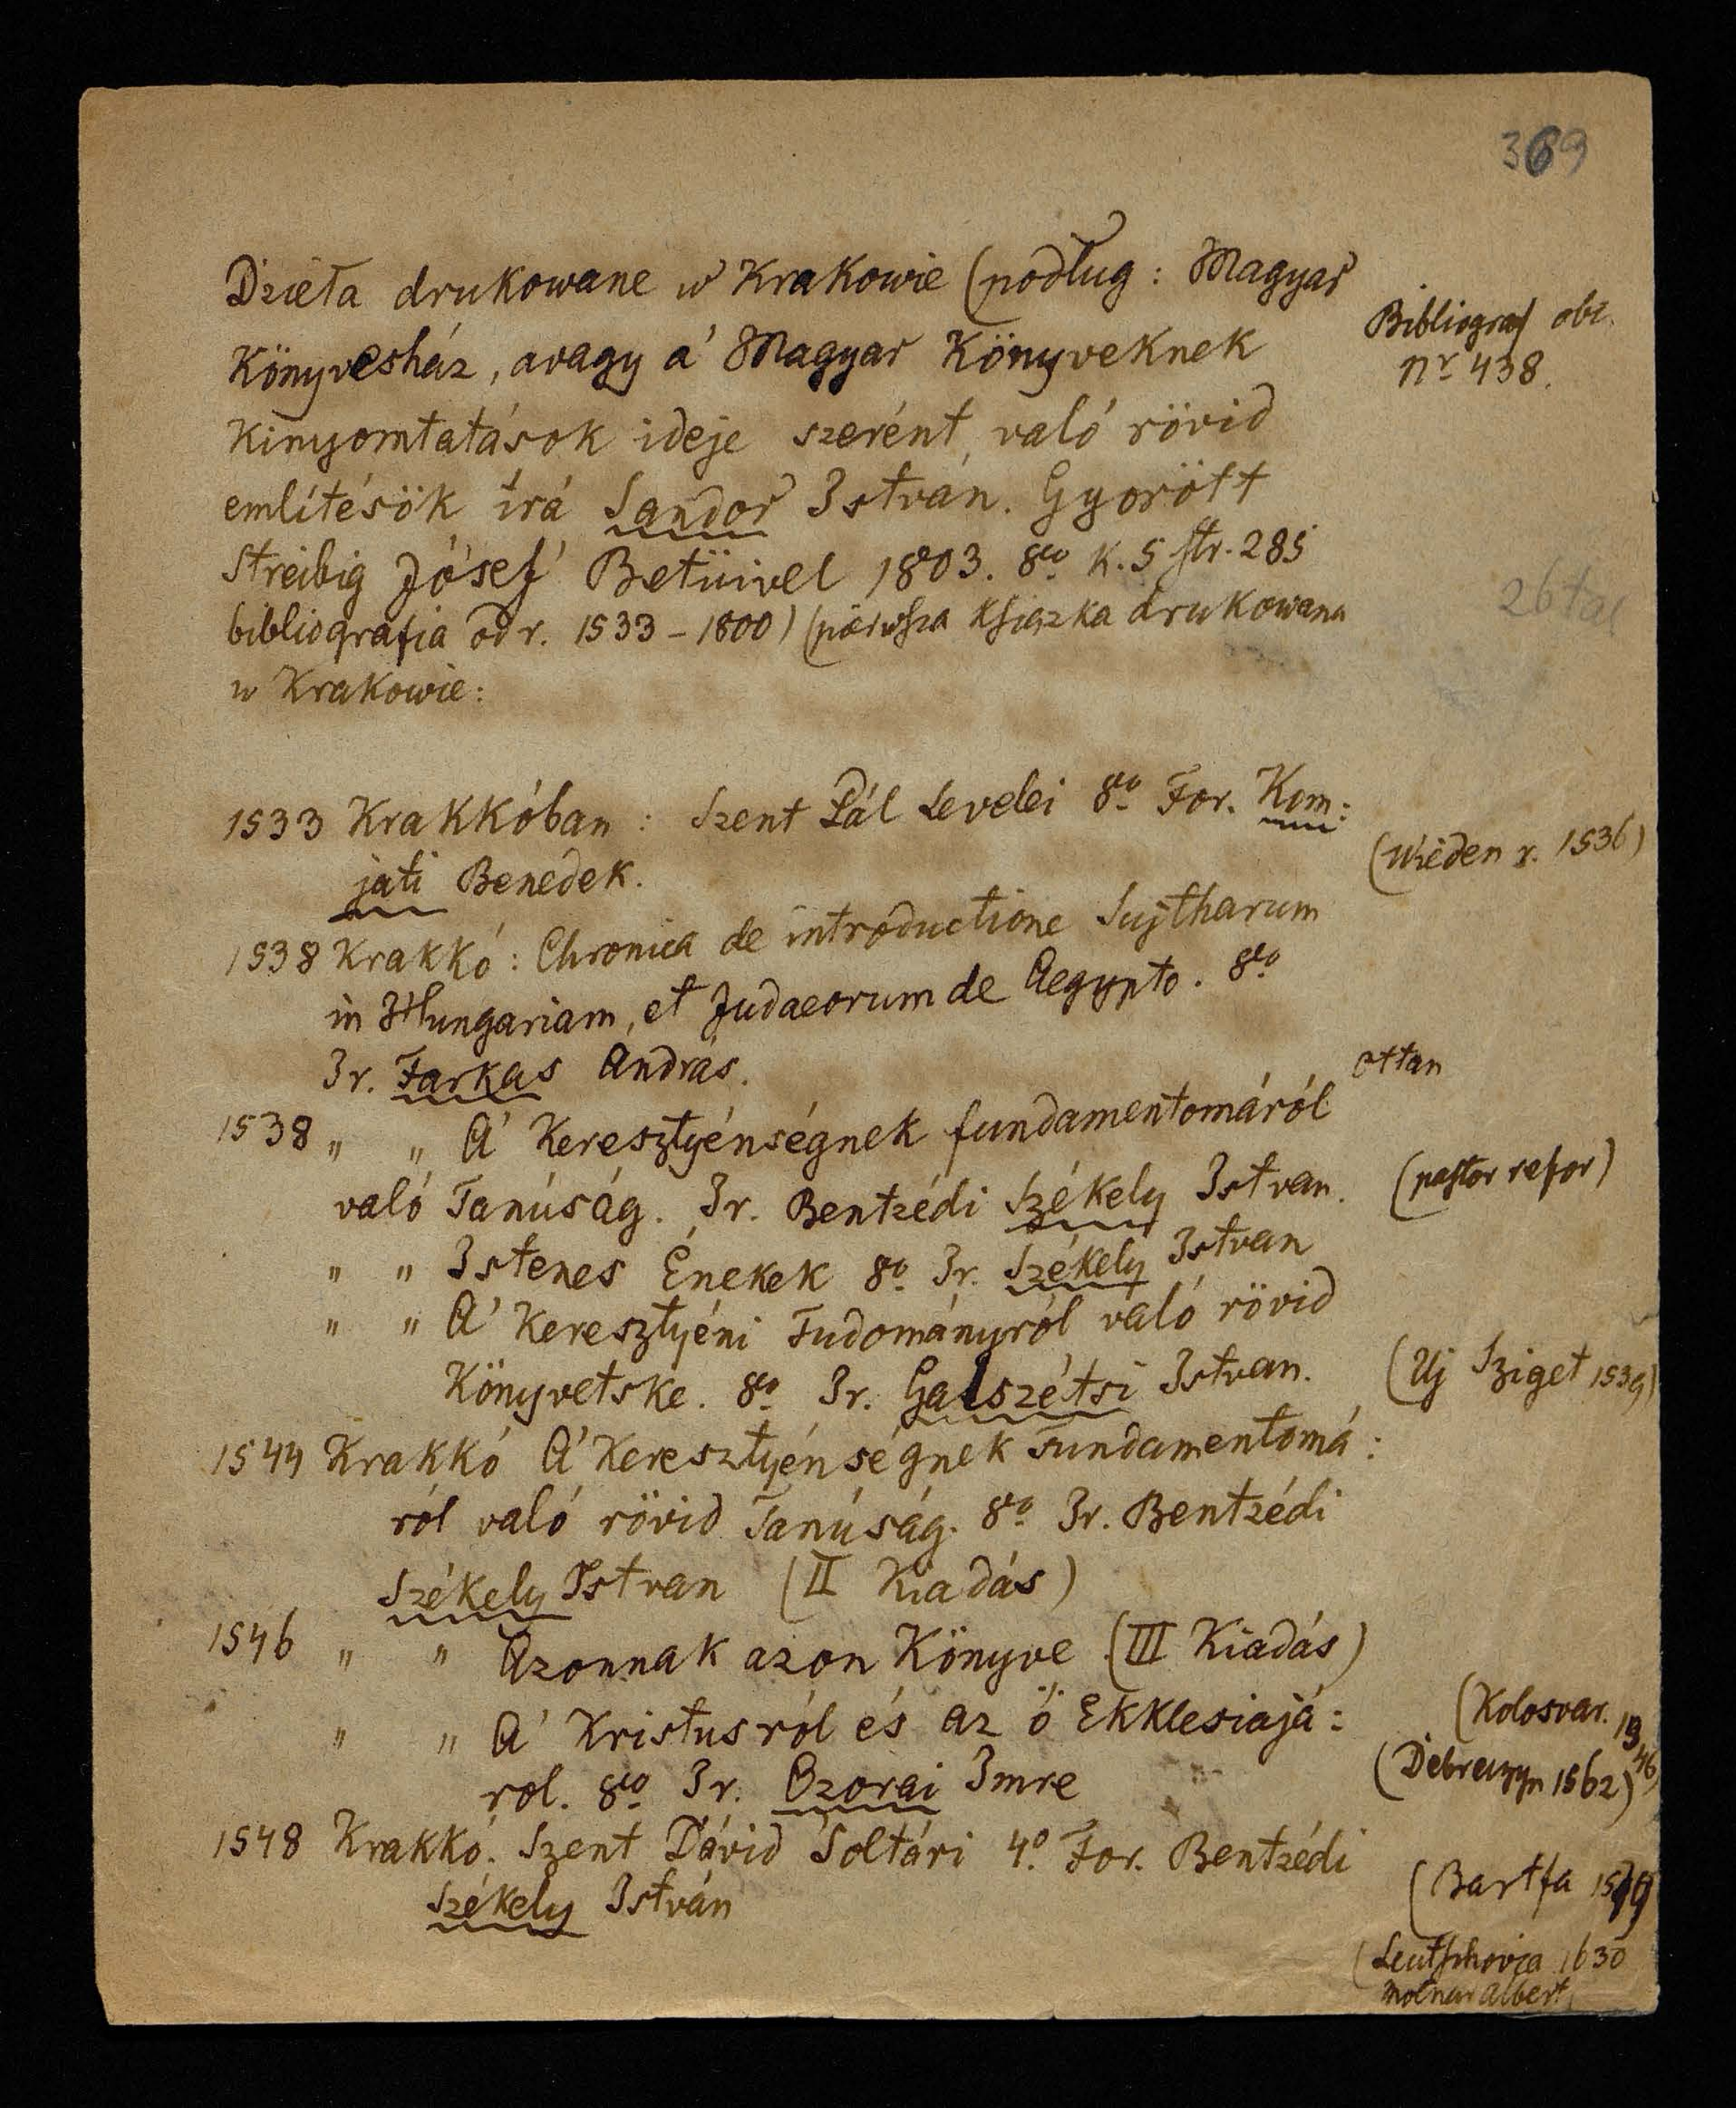 369
Dzieła drukowane w Krakowie (podług: Magyar
Könyvesház, avagy á Magyar Könyveknek
Bibliograf obc.
nr 438.
Kinyomtatások ideje szerént, való rövid
emlitésök irá Sandor István. Gyorött
Streibig Jósef Betüivel 1803. 8vo k. 5 str. 285
bibliografia od r. 1533-1800) (pierwsza książka drukowana
w Krakowie:
1533 Krakkóban: Szent Pál Levelei 8vo For. Kom:
(Wieden r. 1536)
jati Benedek.
1538 Krakkó: Chronica de introductione Sujtharum
in Hungariam, et Judaeorum de Aegypto. 8vo
Ir. Farkas András.
ottan
1538 " " A' Keresztyénségnek fundamentomáról
való Tanúság. Ir. Bentzédi Székely Istvan.
(pastor refor)
" " Istenes Énekek 8o Ir. Székely Istvan
" " A' Keresztyéni Tudományról való rövid
Könyvetske. 8vo Ir. Galszétsi Istvan.
(Uj Sziget 1539)
1544 Krakkó A' Keresztyénségnek Fundamentomá:
ról való rövid Tanúság. 8vo Ir. Bentzédi
Székely Istvan (II Kiadás)
1546 " " Azonnak azon Könyve (III Kiadás)
" " A' Kristusról és az ő Ekklesiajá:
(Kolosvar. 1546)
rol. 8vo Ir. Ozorai Imre
(Debreczyn 1562)
1548 Krakkó. Szent Dávid Soltári 4o. For. Bentzédi
Székely István
(Bartfa
(Leutschovia 1630
Molnar Albert